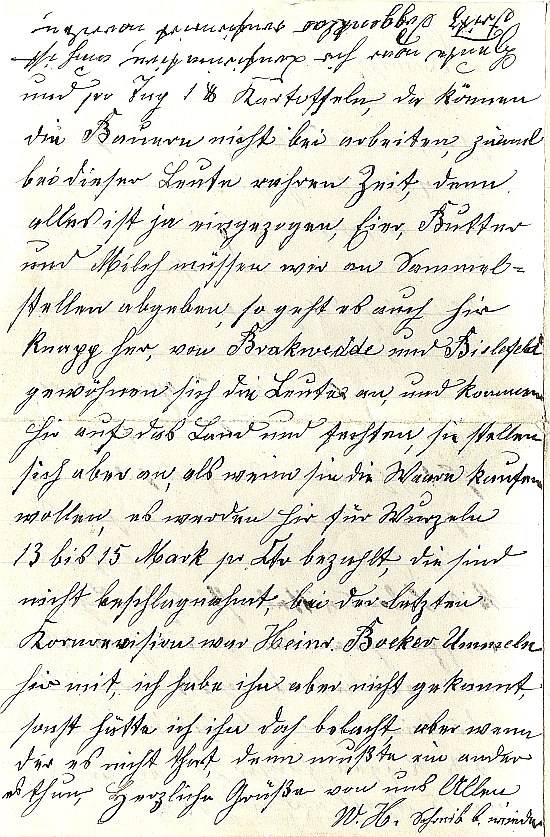 und pro Tag 1 ℔ Kartoffeln, da können
die Bauern nicht bei arbeiten, zumal
bei dieser Leute rahren Zeit, denn
alles ist ja eingezogen, Eier, Butter
und Milch müssen wir an Sammel=
stellen abgeben, so geht es auch hir
knapp her, von Brakwedde und Bielefeld
gewöhnen sich die Leute an, und kommen
hir auf das Land und fechten, sie stellen
sich aber an als wenn sie die Waare kaufen
wollen, es werden hir für Wurzeln
13 bis 15 Mark pr Ctr bezahlt, die sind
nicht beschlagnahmt, bei der letzten
Kornrevision war Heinr. Boeker Ummeln
hir mit, ich habe ihn aber nicht gekannt,
sonst hätte ich ihn doch belacht aber wenn
der es nicht that, denn mußte ein ander
es thun, Herzliche Grüße von uns Allen
W. H. Schreib b. wieder